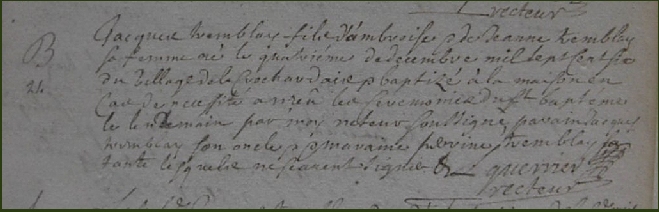 recteur
B Jacques tremblay fils d'ambroise & de Jeanne tremblay
21 sa femme née le quatrième de decembre mil sept cent six
du village de la & baptizé à la maison en
cas de necessité a receu les ceremonies du st bapteme
le lendemain par moy recteur soussigné, parain Jacques
tremblay son oncle & maraine perrine tremblay
tante lesquels ne scavent signer
guerrier
recteur